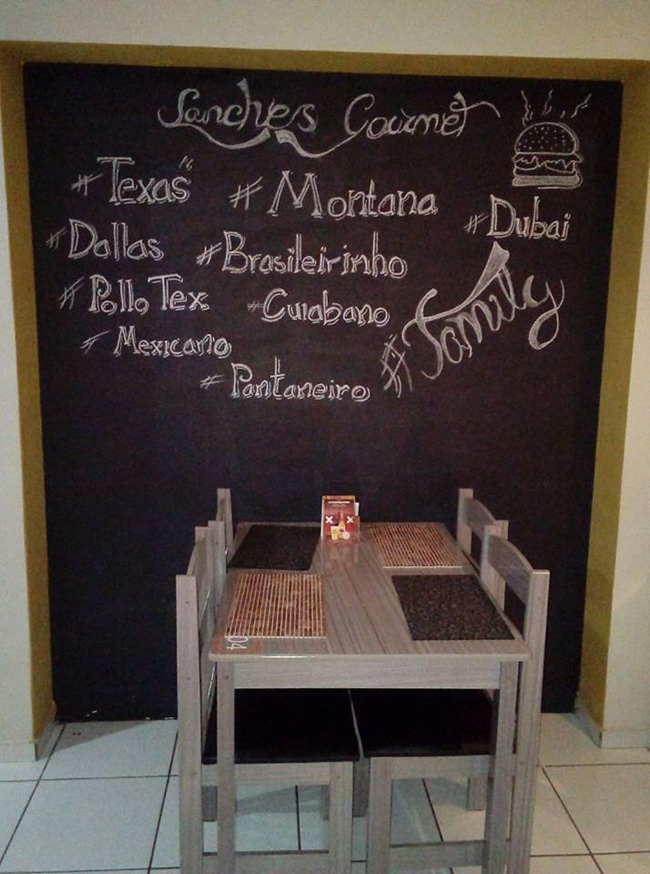 Lanches Gourmet
#Texas"
#Montana
#Dubai
#Dallas
#Brasileirinho
#Pollo Tex
#Cuiabano
#Family
# Mexicano
# Pantaneiro
04